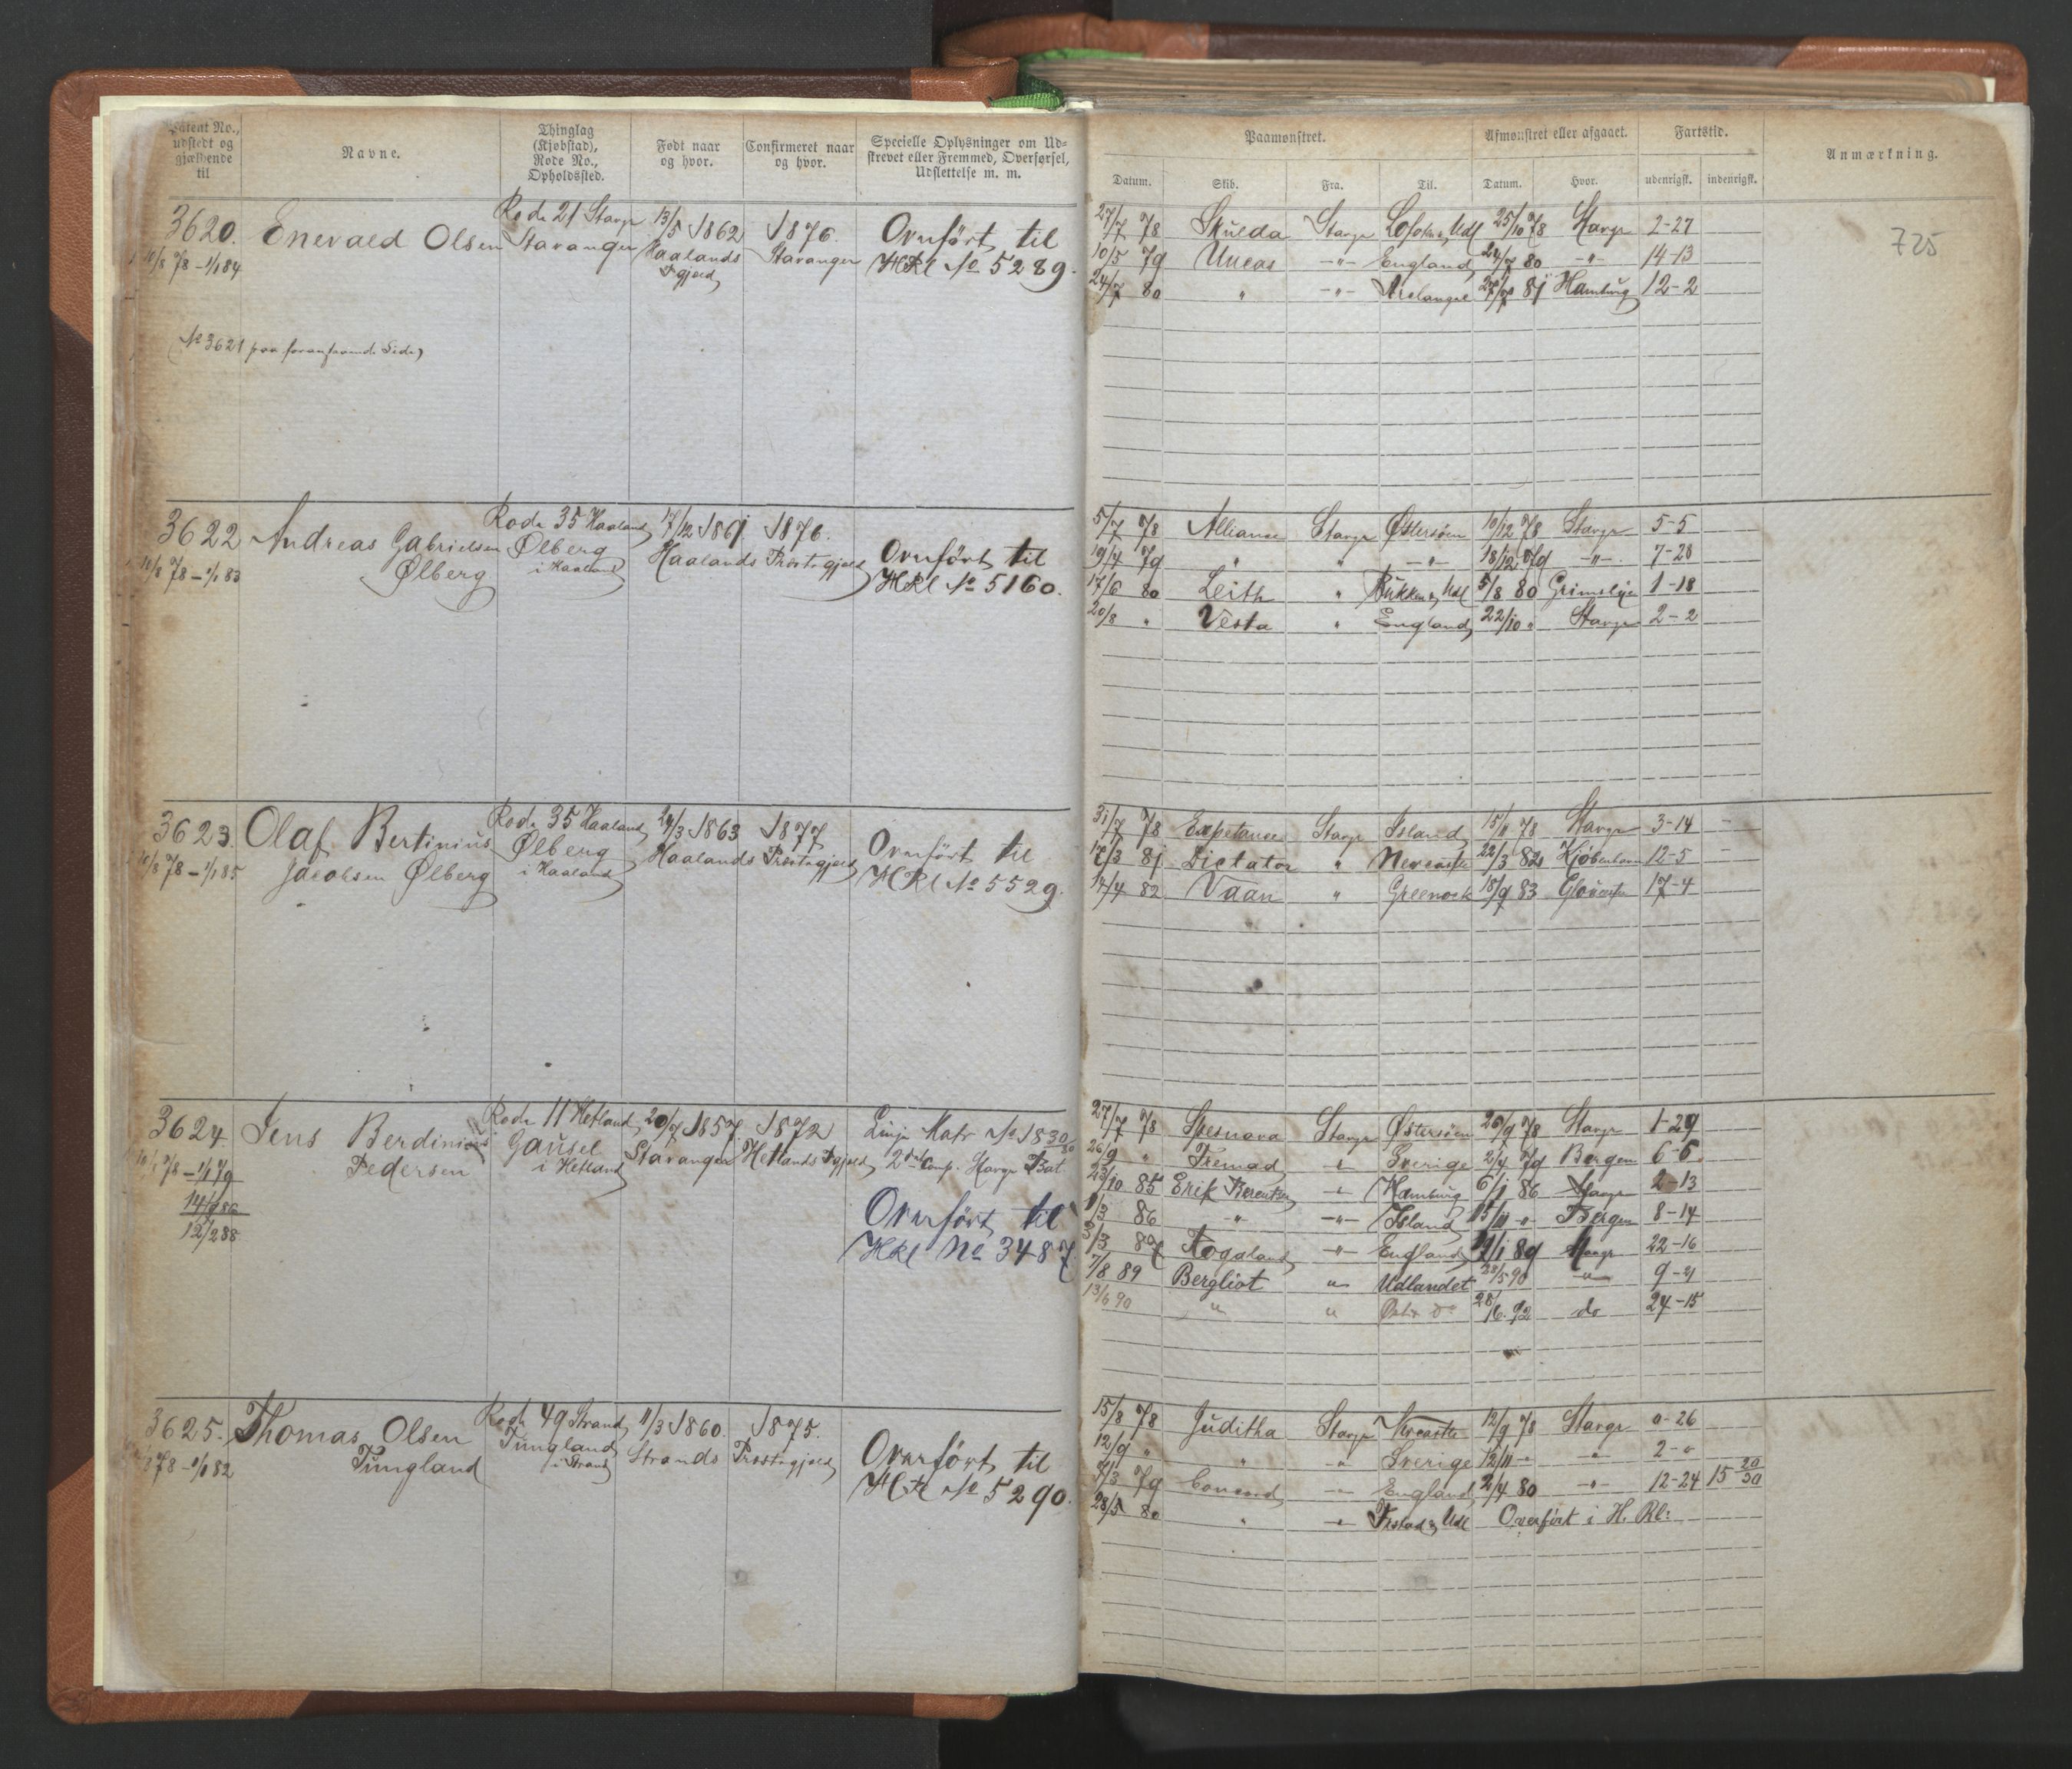 Patent No., udstedt og gjældende til
Navne.
Thinglag (Kjøbstad), Rode No., Opholdssted.
Født naar og hvor.
Confirmeret naar og hvor.
Specielle Oplysninger om Udstrevet eller Fremmed, Overførsel, Udslettelse m. m.
Paamønstret.
Afmønstret eller afgaaet.
Fartstid.
Anmærkning.
Datum.
Skib.
Fra.
Til.
Datum.
Hvor.
udenrigsk.
indenrigsk.
725
3620.
10/8 78 - 1/1 84
Enevald Olsen
Rode 21 Stavgr
Stavanger
13/5 1862
Haalands Pgjeld
1876.
Stavanger
Overført til
HRl No 5289.
27/7 78 Skulda Stavgr Lofoten & Udl 25/10 78 Stavgr 2-27
10/5 79 Uncas -"- England 24/7 80 -"- 14-13
24/7 80 " -"- 81 Hamburg 12-2
(No 3621 paa foranstaaende Side)
3622
10/8 78 - 1/1 83
Andreas Gabrielsen
Ølberg
Rode 35 Haaland
Ølberg
i Haaland
17/12 1861.
Haalands
1876.
Præstegjeld
Overført til
HRl No 5160.
5/7 78 Alliance Stavgr Østersøen 10/12 78 Stavgr 5-5
19/4 79 " " -"- 18/12 79 -"- 7-28
17/6 80 Leith " & Udl 5/8 80 1-18
20/8 " Vesta " England 22/10 " Stavgr 2-2
3623.
10/8 78 - 1/1 85
Olaf Bertinius
Jacobsen Ølberg
Rode 35 Haaland
Ølberg
i Haaland
24/3 1863
Haalands
1877
Præstegjeld
Overført til
HRl No 5529.
31/7 78 Expetance Stavgr Island 15/11 78 Stavgr 3-14 -
17/3 81 Dictator " Newcastle 22/3 82 Kjøbenhavn 12-5 -
14/4 82 Vaan " Greenock 18/9 83 17-4
3624
78 - 1/1 79
12/2 88
Jens Berdinius
Pedersen
Rode 11 Hetland
Gausel
i Hetland
20/7 1857.
Stavanger
1872
Hetlands Pgjeld
Linje Matr No 1830/80
2den Comp. Stavgr Bat.
Overført til
HRl No 3487
27/7 78 Stavgr Østersøen 26/9 78 Stavgr 1-29
26/9 " Fremad " Sverige 2/4 79 Bergen 6-6
23/10 85 Erik Berentsen " Hamburg 6/1 86 Stavgr 2-13
1/3 86 " -"- Island 15/11 " Bergen 8-14
3/3 87 Rogaland -"- England 89 Stavgr 22-16
7/8 89 Bergliot " Udlandet 28/5 90 -"- 9-21
13/6 90 " " do 28/6. 92 do 24-15
3625.
78 - 1/1 82
Thomas Olsen
Tungland
Rode 49 Strand
Tungland
i Strand
11/3 1860.
Strands
1875.
Præstegjeld
Overført til
HRl No 5290.
15/8 78 Juditha Stavgr Newcastle 12/9 78 Stavgr 0-26
12/9 " " " Sverige 12/11 " -"- 2-0
7/3 79 Concord " England 2/4 80 -"- 12-24 15 20/30
28/5 80 " " & Udl Overført i H. Rl: